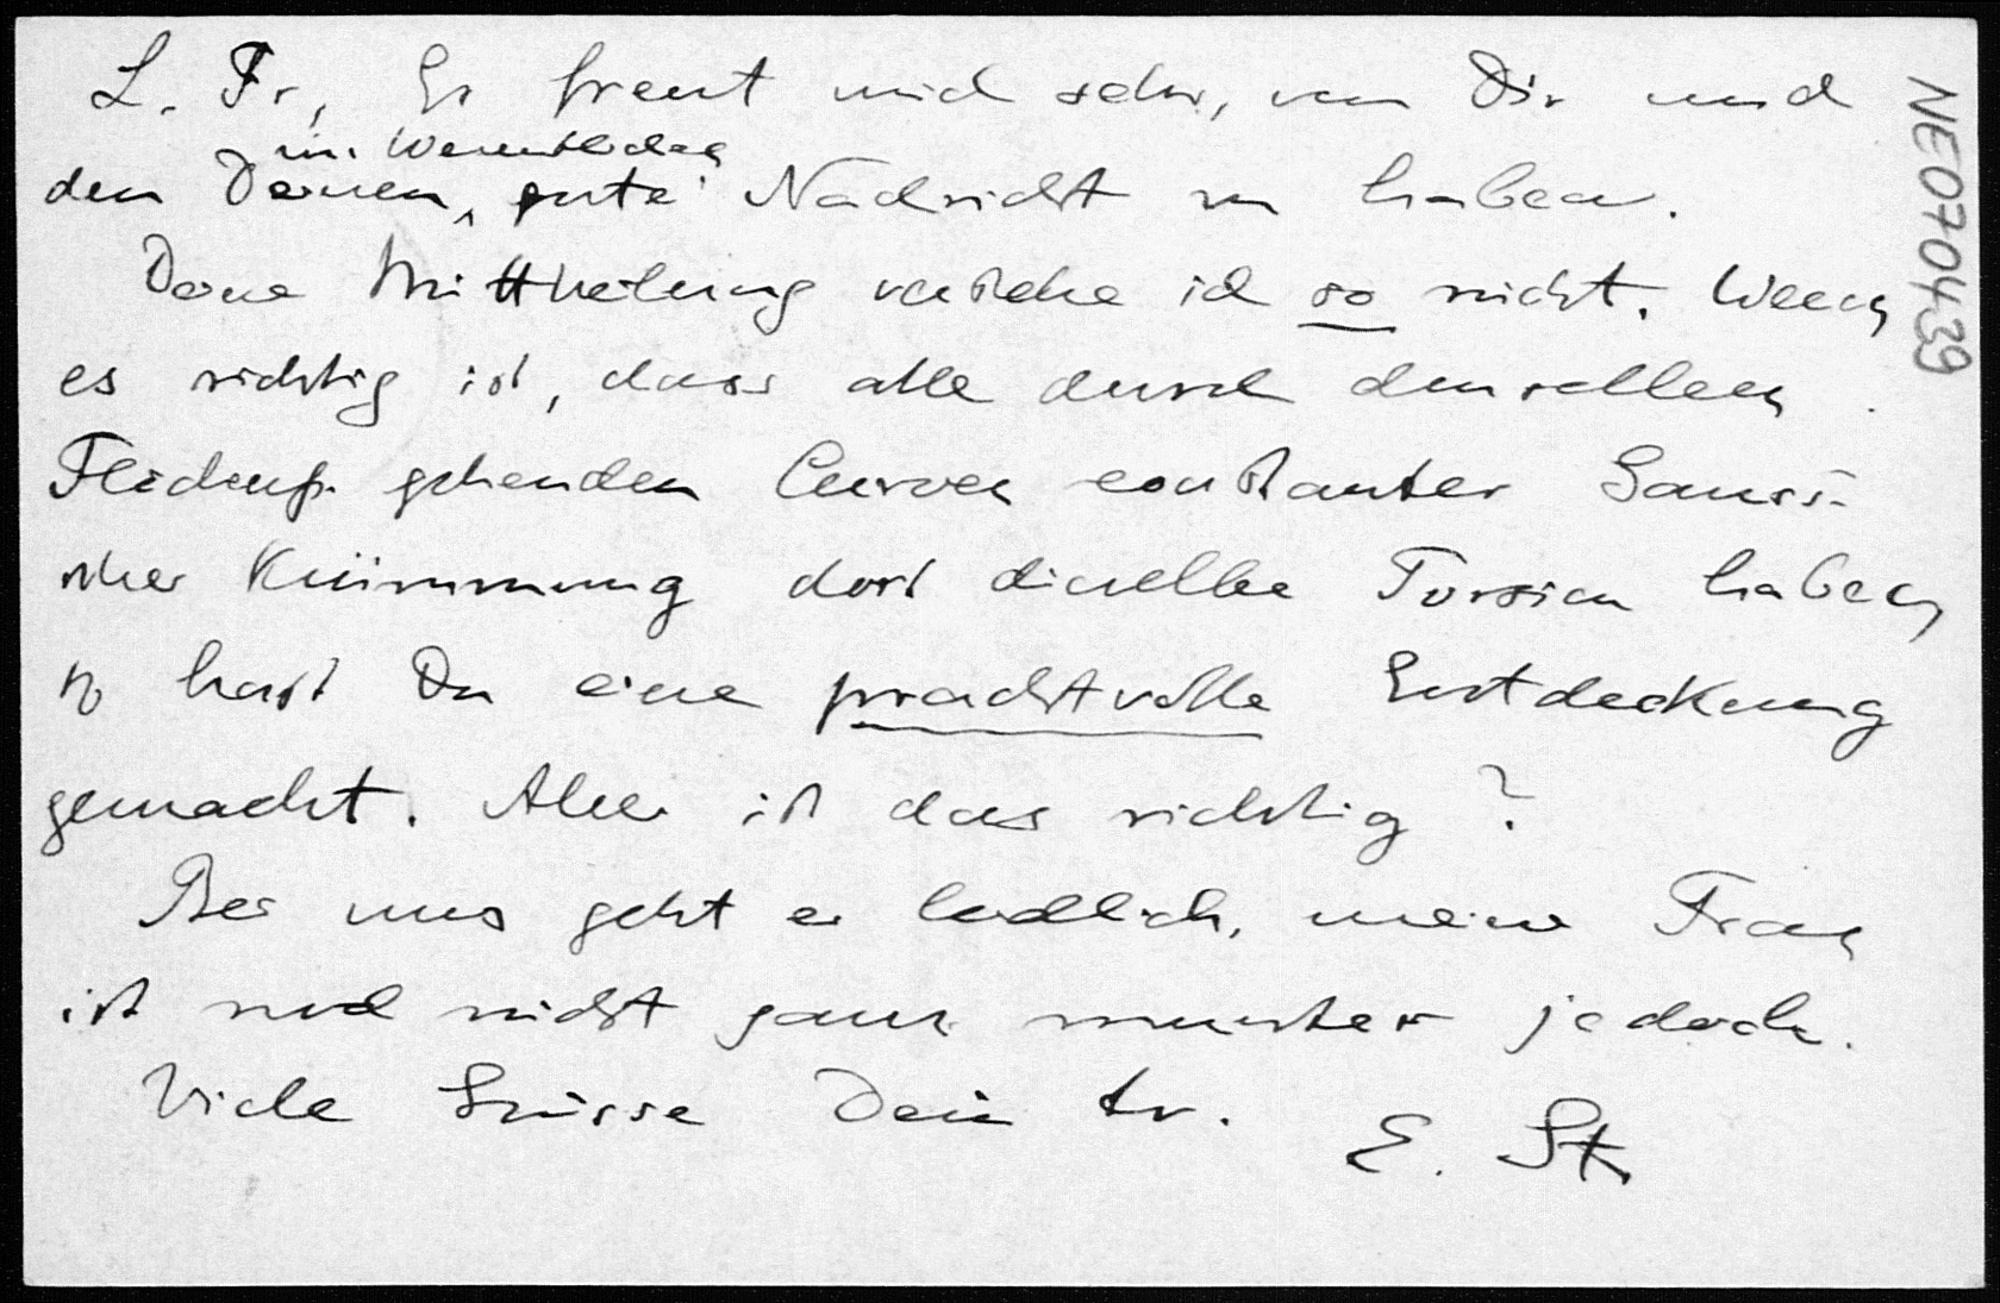 L. Fr, Es freut mich sehr, von Dir und
im Wesentlichen
den Deinen, gute Nachricht zu haben.
Deine Mittheilung verstehe ich so nicht. Wenn
es richtig ist, dass alle durch denselben
Flächenp. gehenden Curven constanter Gauss-
scher Krümmung dort dieselbe Torsion haben
so hast Du eine prachtvolle Entdeckung
gemacht. Aber ist das richtig?
Bei uns geht es leidlich, meine Frau
ist noch nicht ganz munter jedoch.
Viele Grüsse Dein tr.
E. St.
NE070439